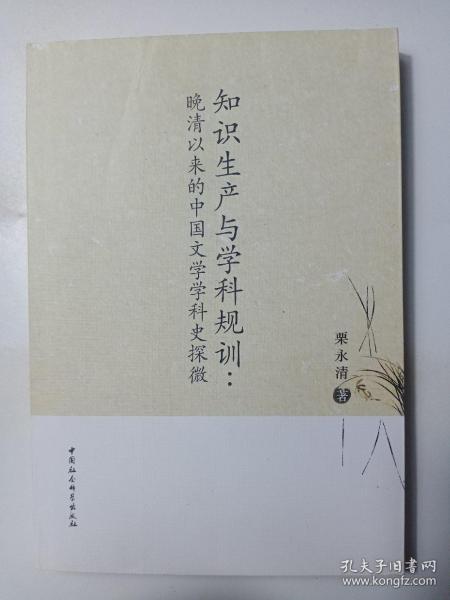 知识生产与学科规训：
晚清以来的中国文学学科史探微
栗永清
著
中国社会科学出版社
孔夫子旧书网
www.kongfz.com